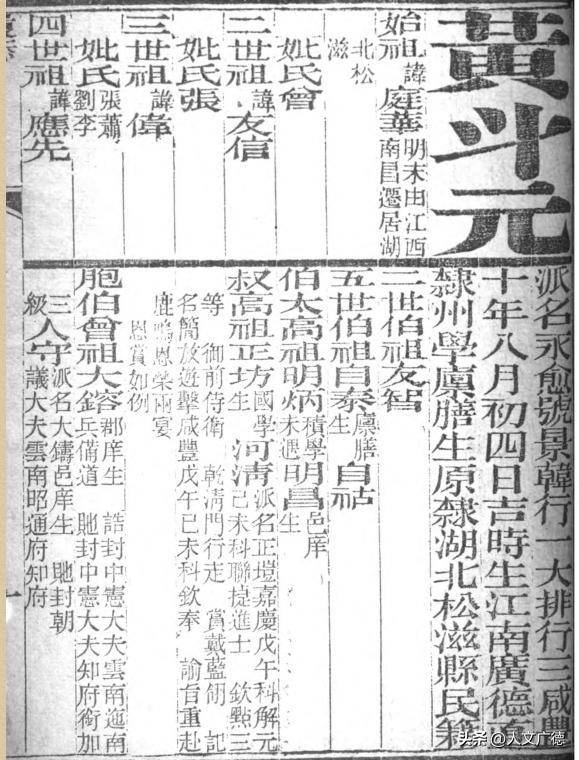 黃斗元
派名永愈號景韓行一大排行三咸豐
十年八月初四日吉時生江南廣德直
隸州學廩膳生原隸湖北松滋縣民籍
始祖諱庭華明末由江西
南昌遷居湖
北松
滋
妣氏曾
二世祖諱友信
妣氏張
三世祖諱偉
妣氏張蕭
劉李
四世祖諱應先
二世伯祖友智
五世伯祖自泰廩膳生自祜
伯太高祖明炳積學未遇明昌邑庠生
叔高祖正坊國學生河清派名正塏嘉慶戊午科解元
己未科聯捷進士 欽點三
等 御前侍衛 乾清門行走 賞戴藍翎 記
名簡放遊擊咸豐戊午己未科欽奉 諭旨重赴
鹿鳴恩榮兩宴
恩賞如例
胞伯曾祖大鎔郡庠生 誥封中憲大夫雲南迤南
兵備道 貤封中憲大夫知府銜加
三級人守派名大鑄邑庠生 貤封朝
議大夫雲南昭通府知府
头条 @人文广德